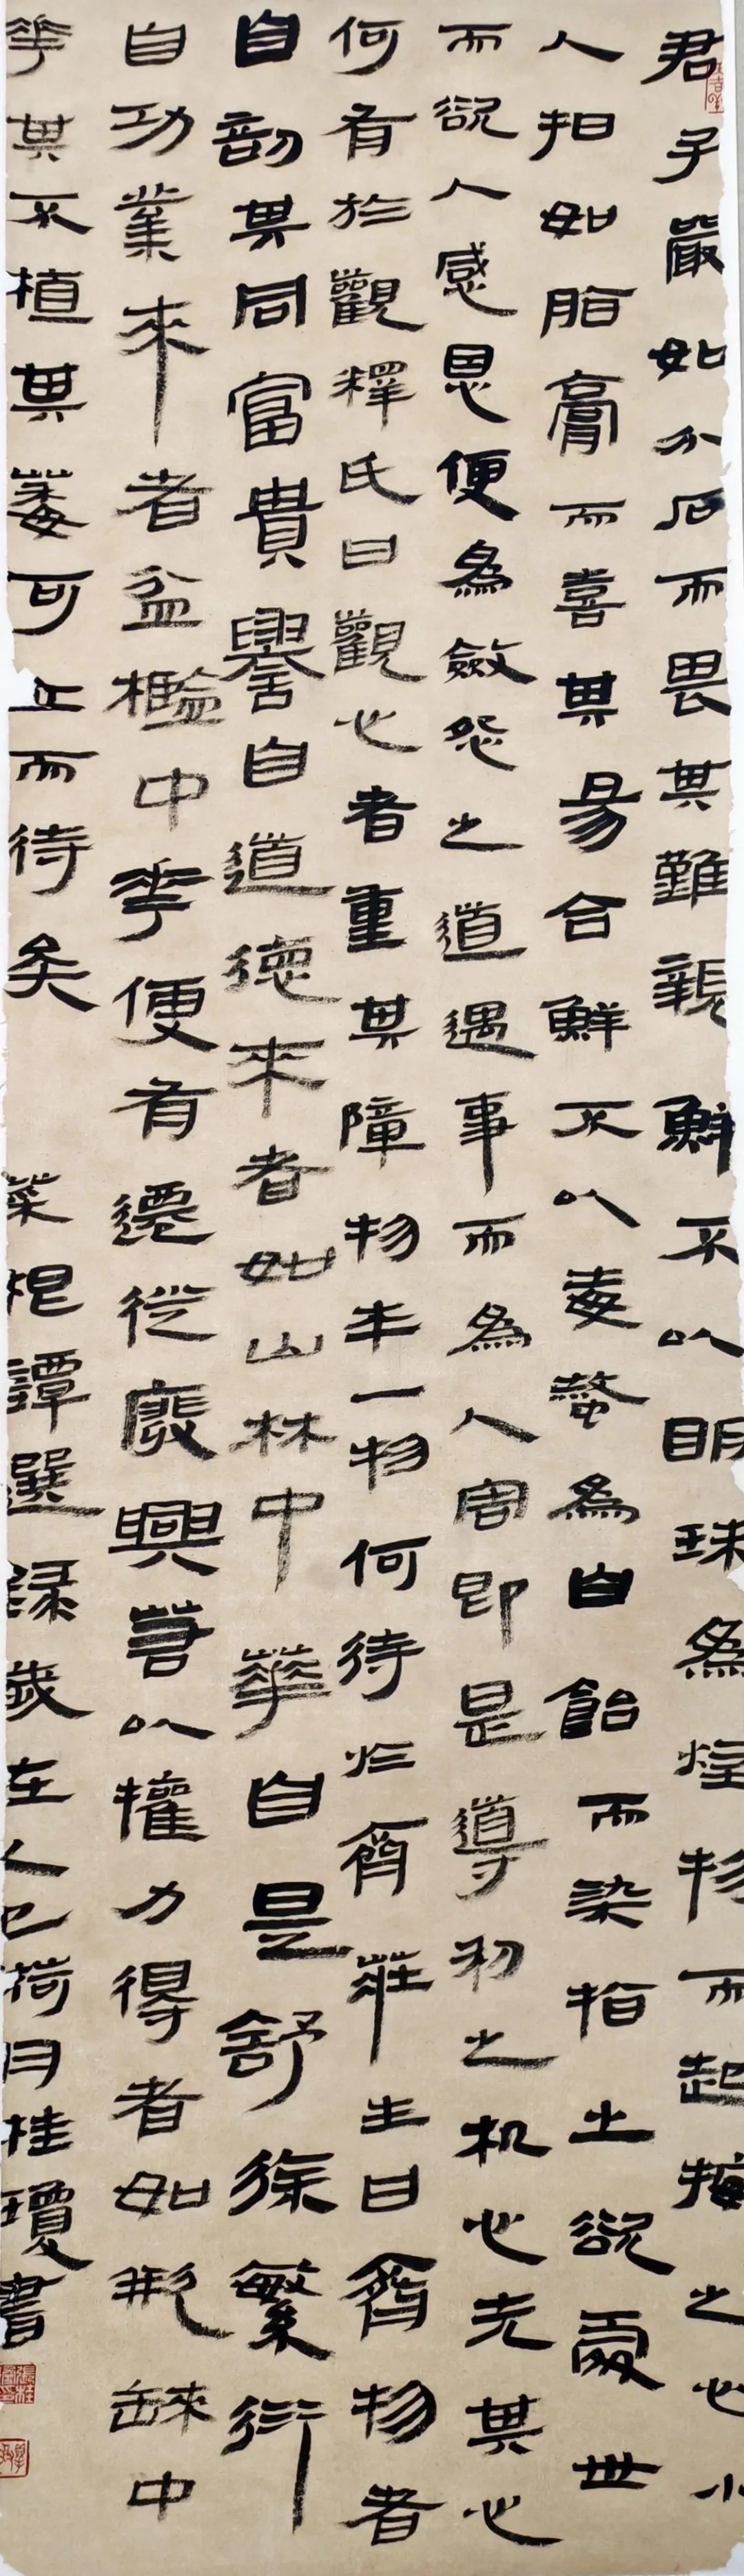 君子嚴如介石而畏其難親鮮不以明珠為怪物而起按之心小
人扣如脂膏而喜其易合鮮不以毒螫為自飴而染指士欲處世
而欲人感恩便為斂怨之道遇事而為人害即是導利之机也无其心
何有於觀釋氏曰觀心者重其障物本一物何待於齊莊生曰齊物者
自剖其同富貴譽自道德來者如山林中華自是舒徐繁衍
自功業來者盆檻中花便有遷徙廢興若以權力得者如瓶缽中
花其不植其萎可立而待矣 菜根譚選錄歲在乙巳荷月桂瓊書